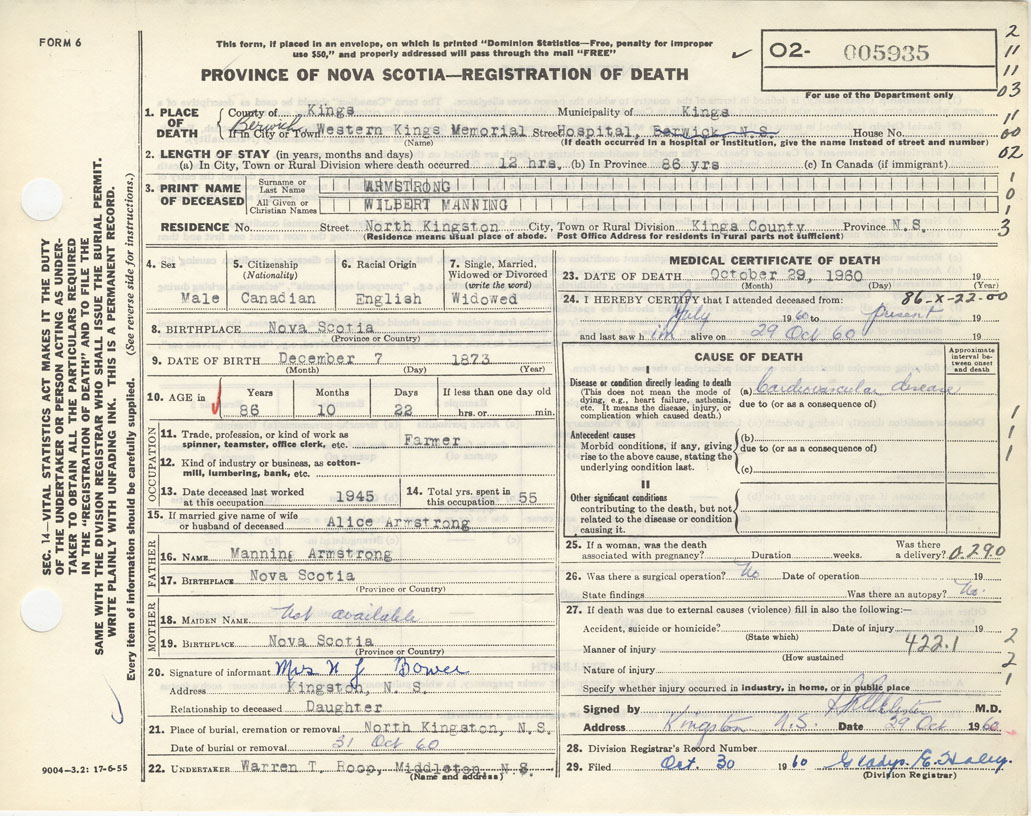 FORM 6
This form, if placed in an envelope, on which is printed "Dominion Statistics—Free, penalty for improper
use $50," and properly addressed will pass through the mail "FREE"
PROVINCE OF NOVA SCOTIA—REGISTRATION OF DEATH
✓
O2- 005935
For use of the Department only
2
11
11
03
11
00
02
1
0
1
3
SEC. 14—VITAL STATISTICS ACT MAKES IT THE DUTY
OF THE UNDERTAKER OR PERSON ACTING AS UNDER-
TAKER TO OBTAIN ALL THE PARTICULARS REQUIRED
IN THE "REGISTRATION OF DEATH" AND TO FILE THE
SAME WITH THE DIVISION REGISTRAR WHO SHALL ISSUE THE BURIAL PERMIT.
WRITE PLAINLY WITH UNFADING INK. THIS IS A PERMANENT RECORD.
Every item of information should be carefully supplied. (See reverse side for instructions.)
1. PLACE OF DEATH County of Kings Municipality of Kings
Berwick
If in City or Town Western Kings Memorial Street Hospital, Berwick N.S. House No.
(Name) (If death occurred in a hospital or institution, give the name instead of street and number)
2. LENGTH OF STAY (in years, months and days)
(a) In City, Town or Rural Division where death occurred 12 hrs. (b) In Province 86 yrs (c) In Canada (if immigrant)
3. PRINT NAME OF DECEASED Surname or Last Name ARMSTRONG
All Given or Christian Names WILBERT MANNING
RESIDENCE No. Street North Kingston City, Town or Rural Division Kings County Province N.S.
(Residence means usual place of abode. Post Office Address for residents in rural parts not sufficient)
4. Sex Male
5. Citizenship (Nationality) Canadian
6. Racial Origin English
7. Single, Married, Widowed or Divorced (write the word) Widowed
8. BIRTHPLACE Nova Scotia
(Province or Country)
9. DATE OF BIRTH December 7 1873
(Month) (Day) (Year)
10. AGE in Years 86 Months 10 Days 22 If less than one day old hrs. or min.
OCCUPATION
11. Trade, profession, or kind of work as spinner, teamster, office clerk, etc. Farmer
12. Kind of industry or business, as cotton-mill, lumbering, bank, etc.
13. Date deceased last worked at this occupation 1945
14. Total yrs. spent in this occupation 55
15. If married give name of wife or husband of deceased Alice Armstrong
FATHER
16. NAME Manning Armstrong
17. BIRTHPLACE Nova Scotia
(Province or Country)
MOTHER
18. MAIDEN NAME Not available
19. BIRTHPLACE Nova Scotia
(Province or Country)
20. Signature of informant Mrs H J Bower
Address Kingston, N. S.
Relationship to deceased Daughter
21. Place of burial, cremation or removal North Kingston, N.S.
Date of burial or removal 31 Oct 60
22. UNDERTAKER Warren T. Roop, Middleton N.S.
(Name and address)
9004-3.2: 17-6-55
MEDICAL CERTIFICATE OF DEATH
23. DATE OF DEATH October 29, 1960 19
(Month) (Day) (Year)
86-X-22-00
24. I HEREBY CERTIFY that I attended deceased from:
July 1960 to present 19
and last saw him alive on 29 Oct 60 19
CAUSE OF DEATH
Approximate interval between onset and death
I
Disease or condition directly leading to death
(This does not mean the mode of dying, e.g., heart failure, asthenia, etc. It means the disease, injury, or complication which caused death.)
(a) Cardiovascular disease
due to (or as a consequence of)
Antecedent causes
Morbid conditions, if any, giving rise to the above cause, stating the underlying condition last.
(b)
due to (or as a consequence of)
(c)
1
1
1
II
Other significant conditions
contributing to the death, but not related to the disease or condition causing it.
25. If a woman, was the death associated with pregnancy? Duration weeks. Was there a delivery? 0.290
26. Was there a surgical operation? No Date of operation 19
State findings Was there an autopsy? No.
27. If death was due to external causes (violence) fill in also the following:—
Accident, suicide or homicide? Date of injury 19
(State which)
Manner of injury 422.1
(How sustained
Nature of injury
Specify whether injury occurred in industry, in home, or in public place
2
2
1
Signed by M.D.
Address Kingston N.S. Date 29 Oct 1960
28. Division Registrar's Record Number
29. Filed Oct. 30 1960 Gladys E. Haley.
(Division Registrar)